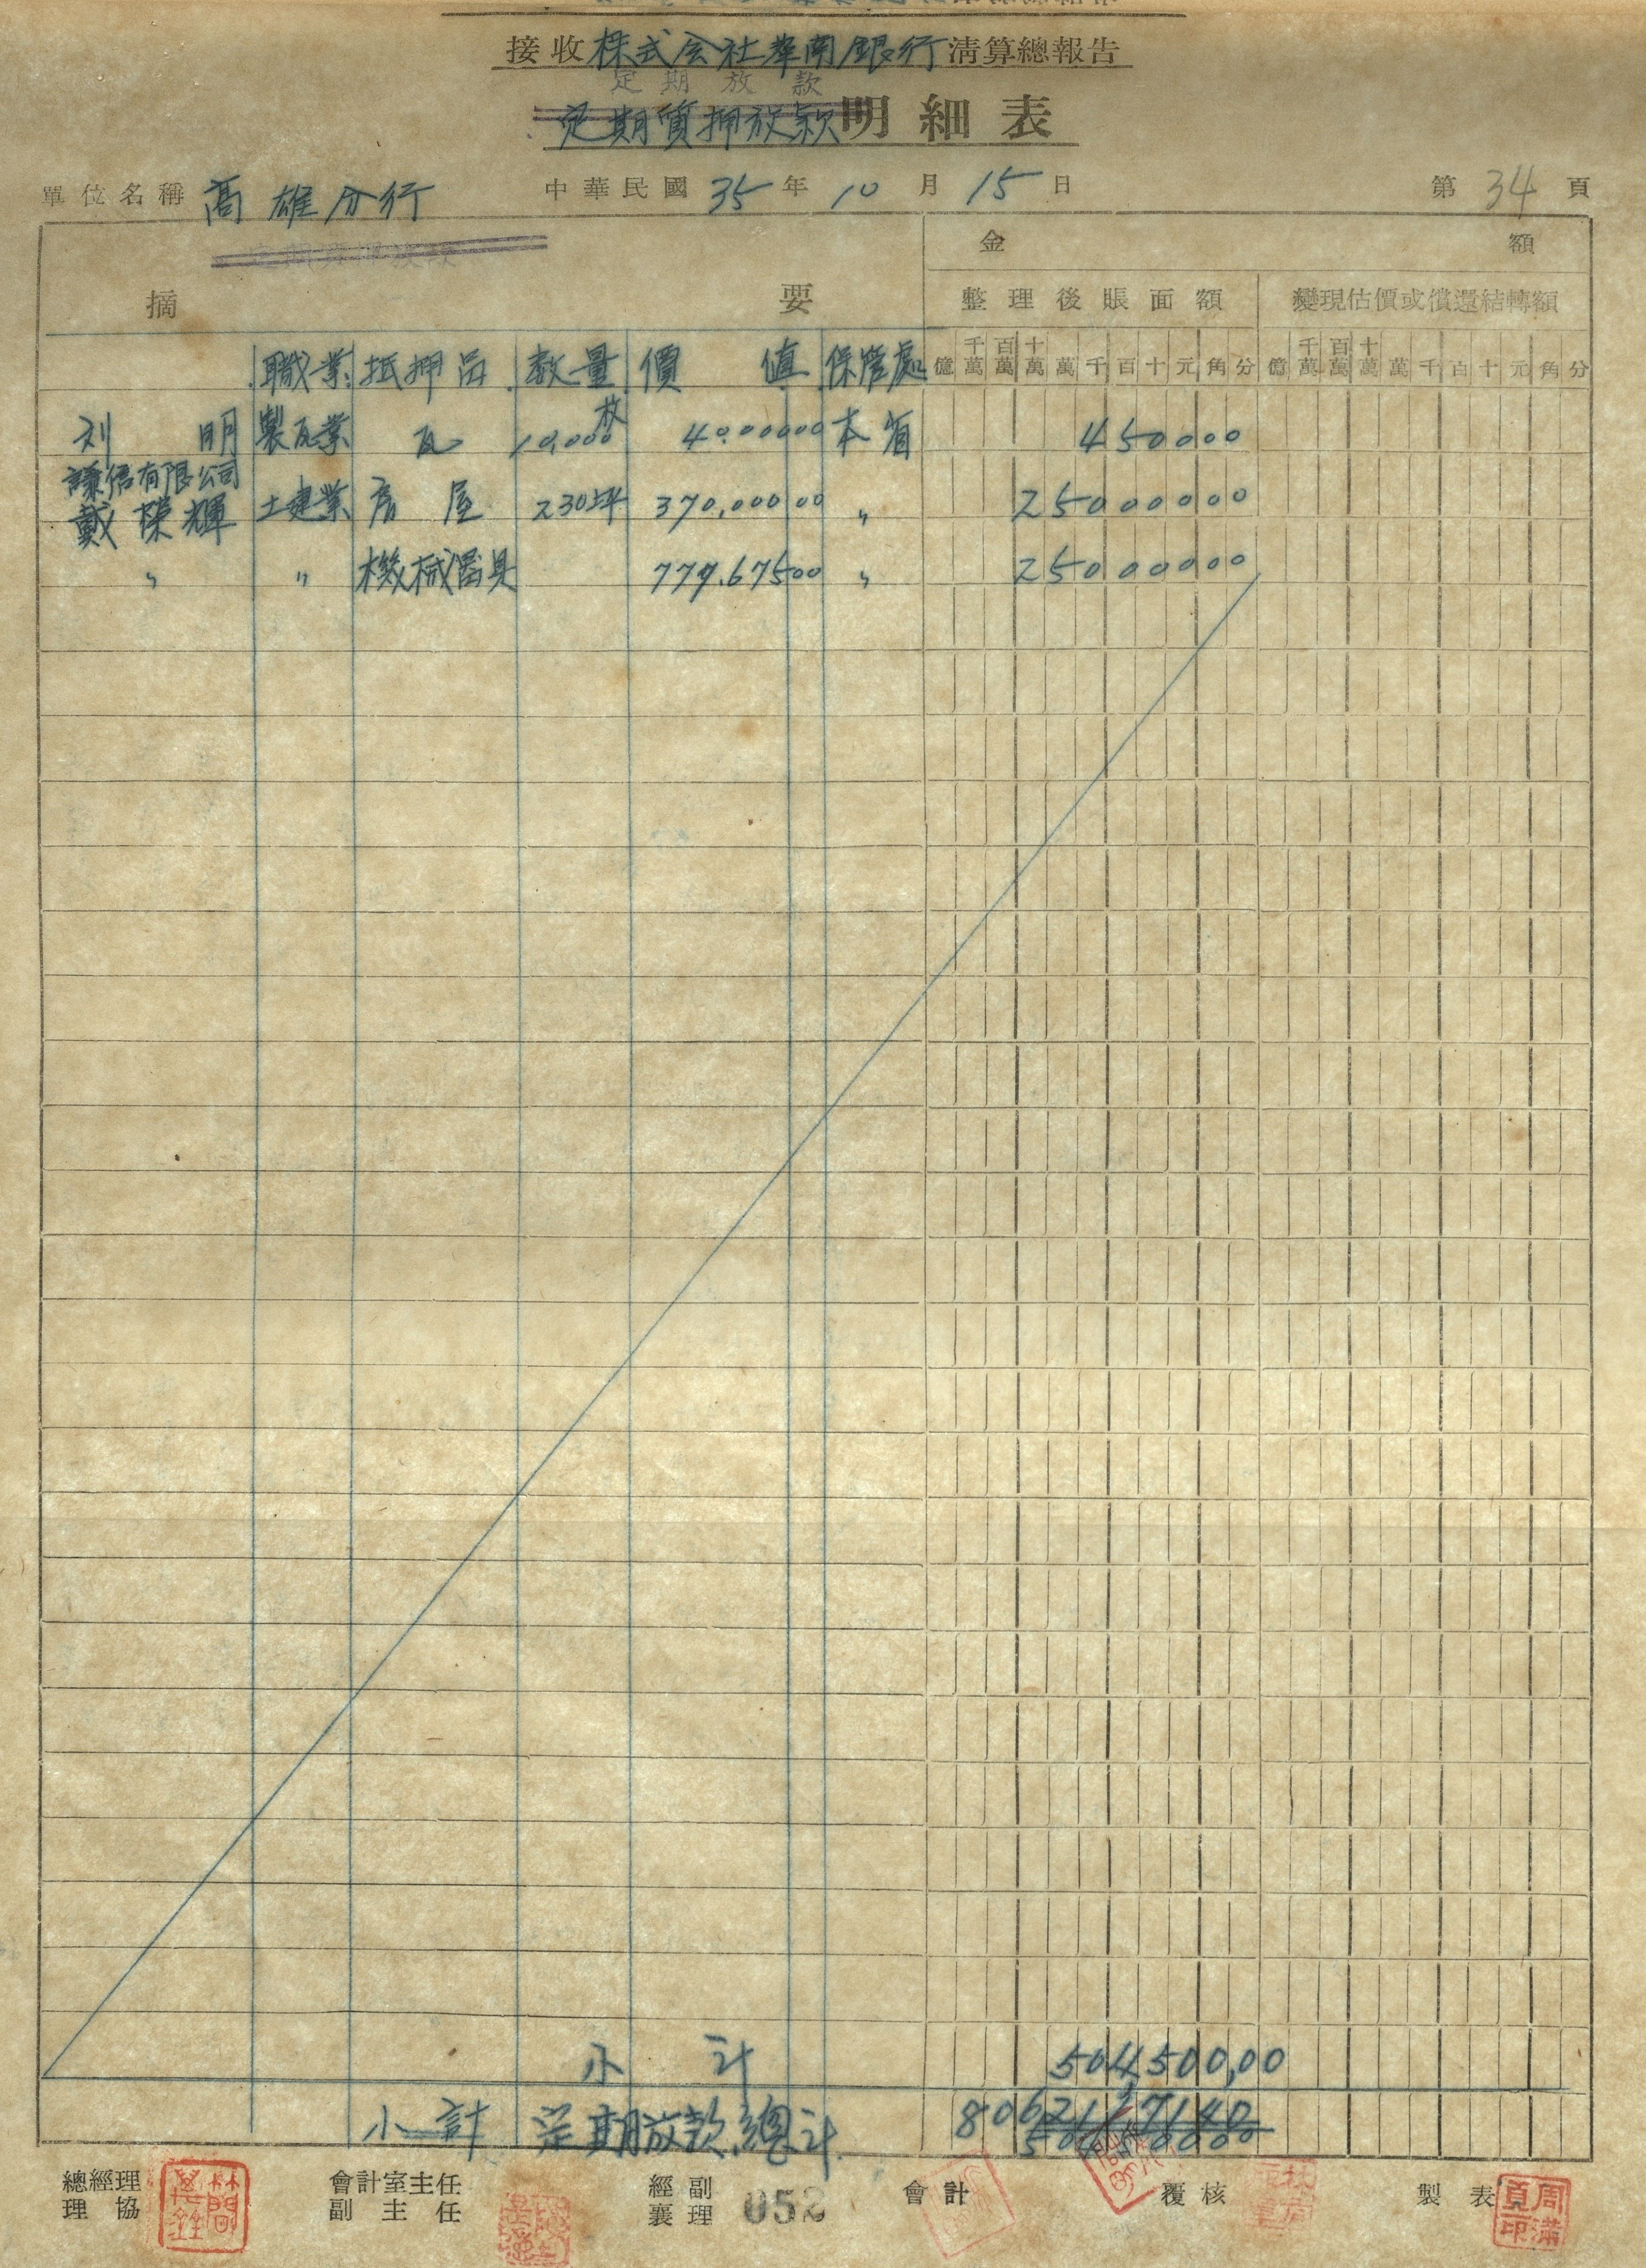 接收株式会社華南銀行清算總報告
定期放款
定期質押放款明細表
單位名稱 高雄分行 中華民國35年10月15日 第34頁
金額
摘要 整理後賬面額 變現估價或償還結轉額
職業 抵押品 数量 價值 保管處 億千萬百萬十萬萬千百十元角分 億千萬百萬十萬萬千百十元角分
刘明 製瓦業 瓦 10,000枚 40,000 00 本省 4500 00
謙信有限公司
戴榮輝 土建業 房屋 230坪 370,000 00 〃 250000 00
〃 〃 機械器具 777,675 00 〃 250000 00
小計 504,500,00
小計 定期放款總計
總經理 會計室主任 經副 會計 覆核 製表
理協 副主任 襄理 052
周滿